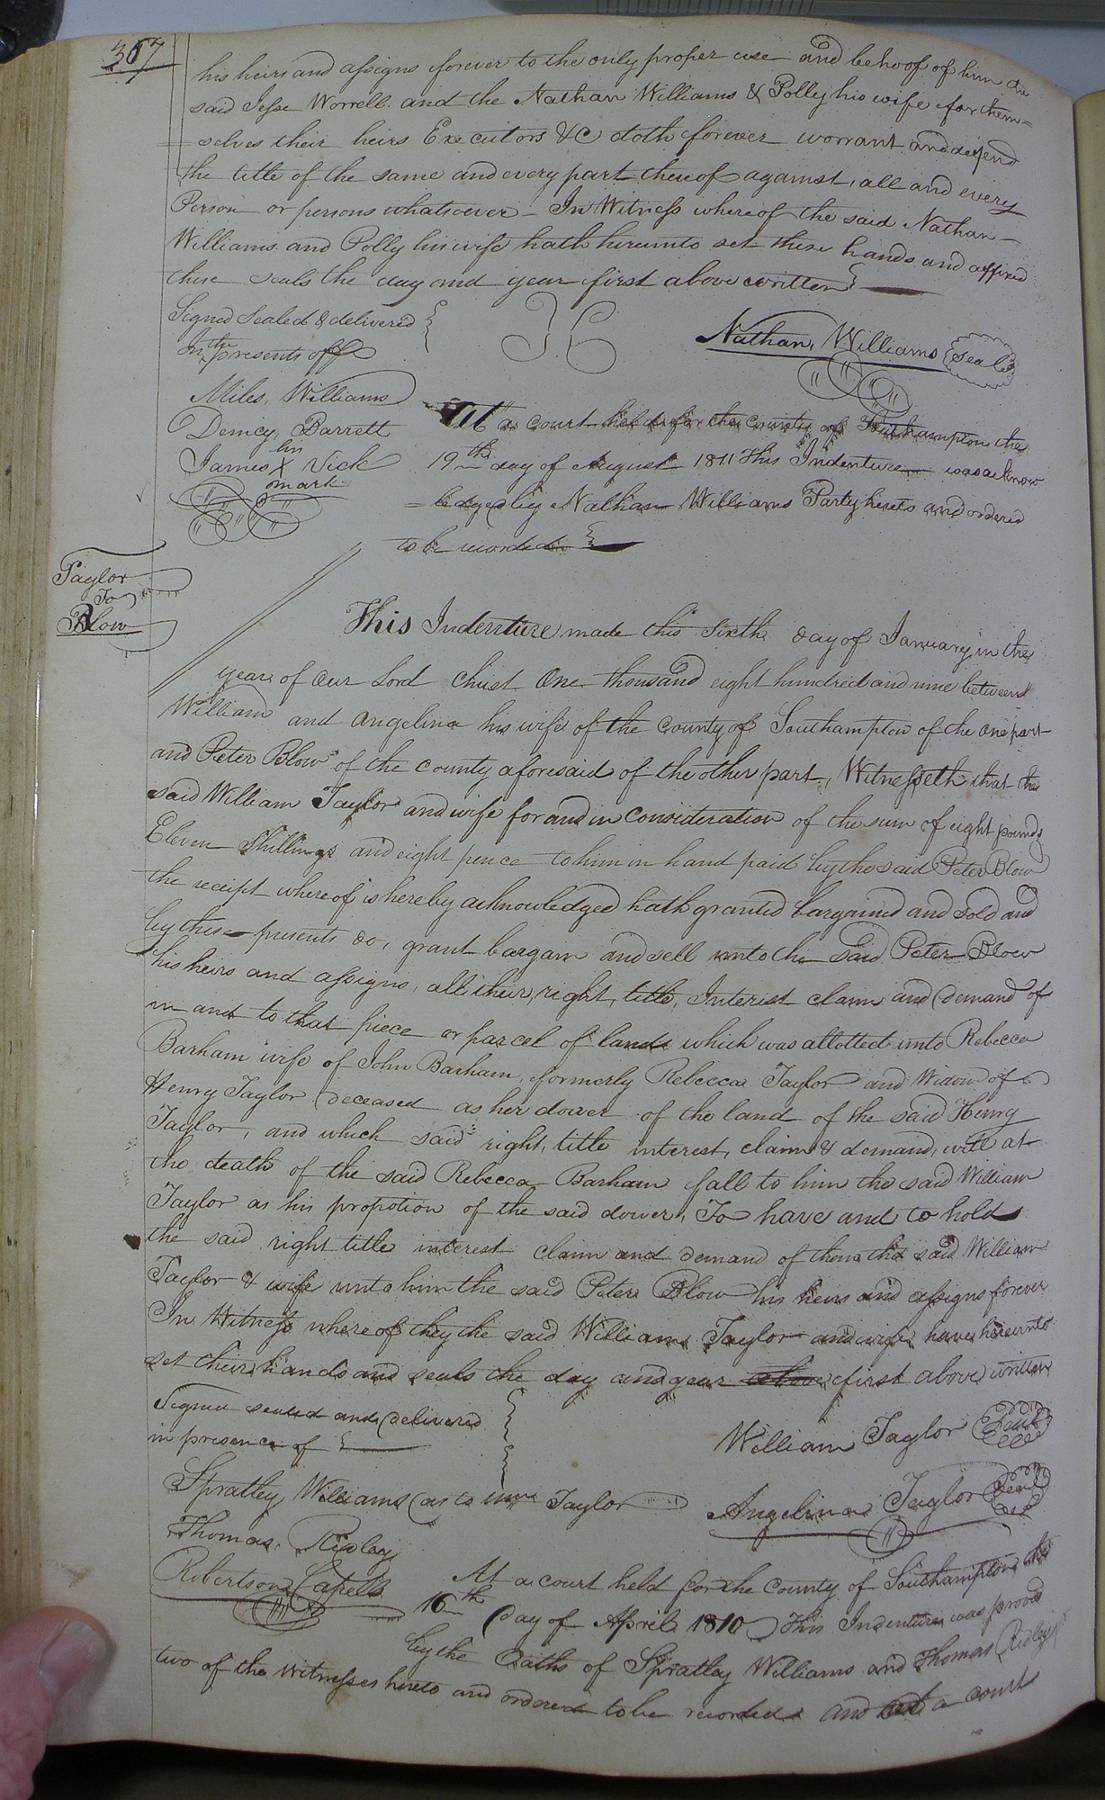 367
his heirs and assigns forever to the only proper use and behoof of him the
said Jesse Worrell and the Nathan Williams & Polly his wife for them=
=selves their heirs Executors &C doth forever worrant and defend
the title of the same and every part thereof against, all and every
Person or persons whatsoever – In Witness whereof the said Nathan –
Williams and Polly his wife hath hereunto set these hands and affixed
these seals the day and year first above written
Signed Sealed & delivered
In the presents off
Nathan Williams seal
Miles, Williams
Demcy, Barrett
James his X mark Vick
At a court held for the county of Southampton the
19th day of August 1811 This Indenture was acknow
=ledged by Nathan Williams Party hereto and ordered
to be recorded
Taylor
To
Blow
This Indenture made this Sixth day of January in the
year of Our Lord Christ One thousand eight hundred and nine between
William and Angelina his wife of the County of Southampton of the one part
and Peter Blow of the county aforesaid of the other part, Witnesseth that the
said William Taylor and wife for and in consideration of the sum of eight pounds
Eleven Shillings and eight pence to him in hand paid by the said Peter Blow
the receipt whereof is hereby acknowledged hath granted bargained and sold and
by these presents do, grant bargain and sell unto the said Peter Blow
his heirs and assigns, all their right, title, Interest claim and demand of
in and to that piece or parcel of land which was allotted unto Rebecca
Barham wife of John Barham, formerly Rebecca Taylor and Widow of
Henry Taylor deceased as her dower of the land of the said Henry
Taylor, and which said right, title interest, claim & demand, will at
the death of the said Rebecca Barham fall to him the said William
Taylor as his propotion of the said dower, To have and to hold
the said right title interest claim and demand of them the said William
Taylor & wife unto him the said Peter Blow his heirs and assigns forever
In Witness whereof they the said William Taylor and wife have hereunto
set their hands and seals the day and year above first above written
Signed sealed and delivered
in presence of
William Taylor Seal
Spratley Williams (as to Taylor
Angelina Taylor Seal
Thomas Ridley
Robertson Capells
At a court held for the County of Southampton the
16th day of April 1810 This Indenture was proved
by the Oaths of Spratley Williams and Thomas Ridley
two of the Witnesses hereto and ordered to be recorded and at a court